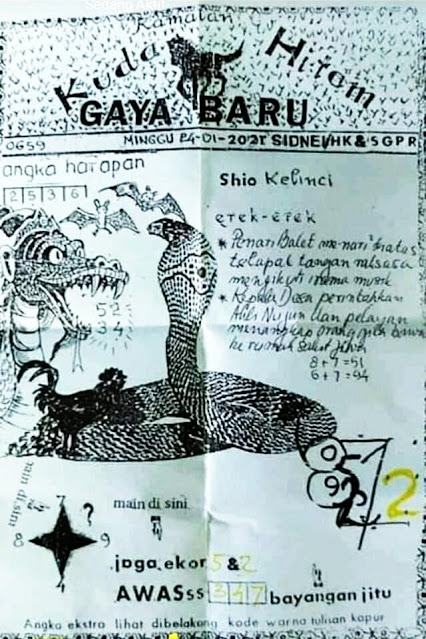 Ramalan
Kuda Hitam
GAYA BARU
0659
MINGGU 24-01-2021 SIDNEI/HK & SGPR
angka harapan
2 5 3 6
Shio Kelinci
erek-erek
* Penari Balet menari diatas
telapak tangan raksasa
mengikuti irama musik
* Kepala Desa perintahkan
Ahli Nujum dan pelayan
menangkap orang gila bawa
ke rumah sakit jiwa
8 + 7 = 51
6 + 7 = 94
52
34
main di sini
7
?
8
9
4
main di sini
0
9
7
2
jaga ekor 5 & 2
AWASss 3 4 7 bayangan jitu
Angka ekstra lihat dibelakang kode warna tulisan kapur